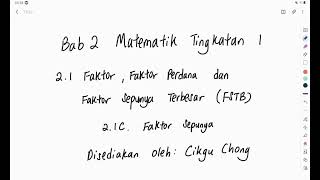 Bab 2 Matematik Tingkatan 1
2.1 Faktor, Faktor Perdana dan
Faktor Sepunya Terbesar (FSTB)
2.1C. Faktor Sepunya
Disediakan oleh: Cikgu Chong